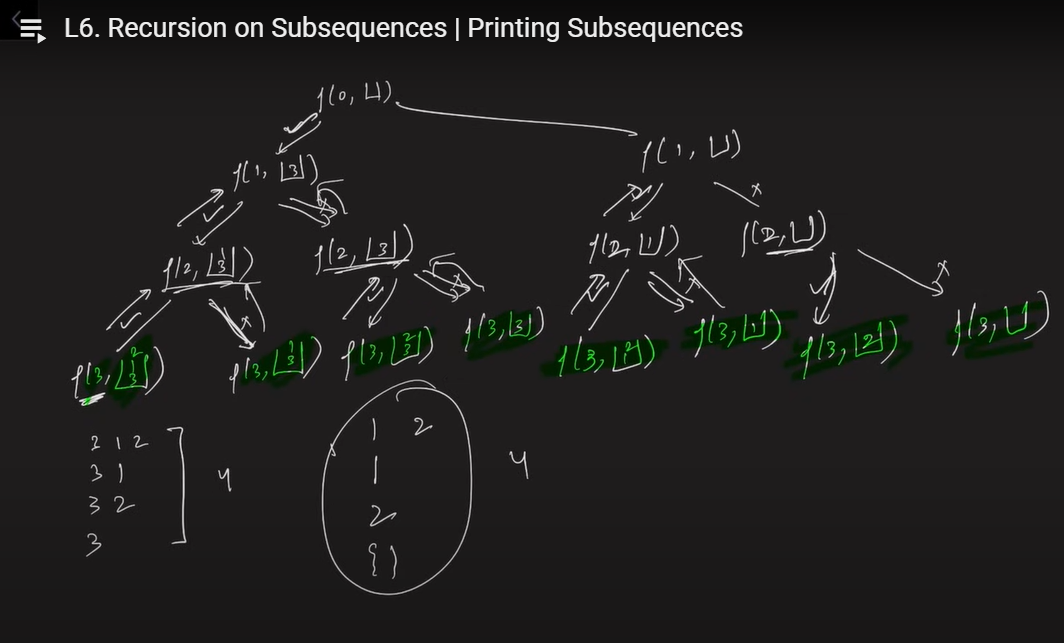 L6. Recursion on Subsequences | Printing Subsequences
f(0, [])
f(1, [3]) f(1, [])
f(2, [3 1]) f(2, [3]) f(2, [1]) f(2, [])
f(3, [3 1 2]) f(3, [3 1]) f(3, [3 2]) f(3, [3]) f(3, [1 2]) f(3, [1]) f(3, [2]) f(3, [])
3 1 2
3 1
3 2
3
4
1 2
1
2
{}
4